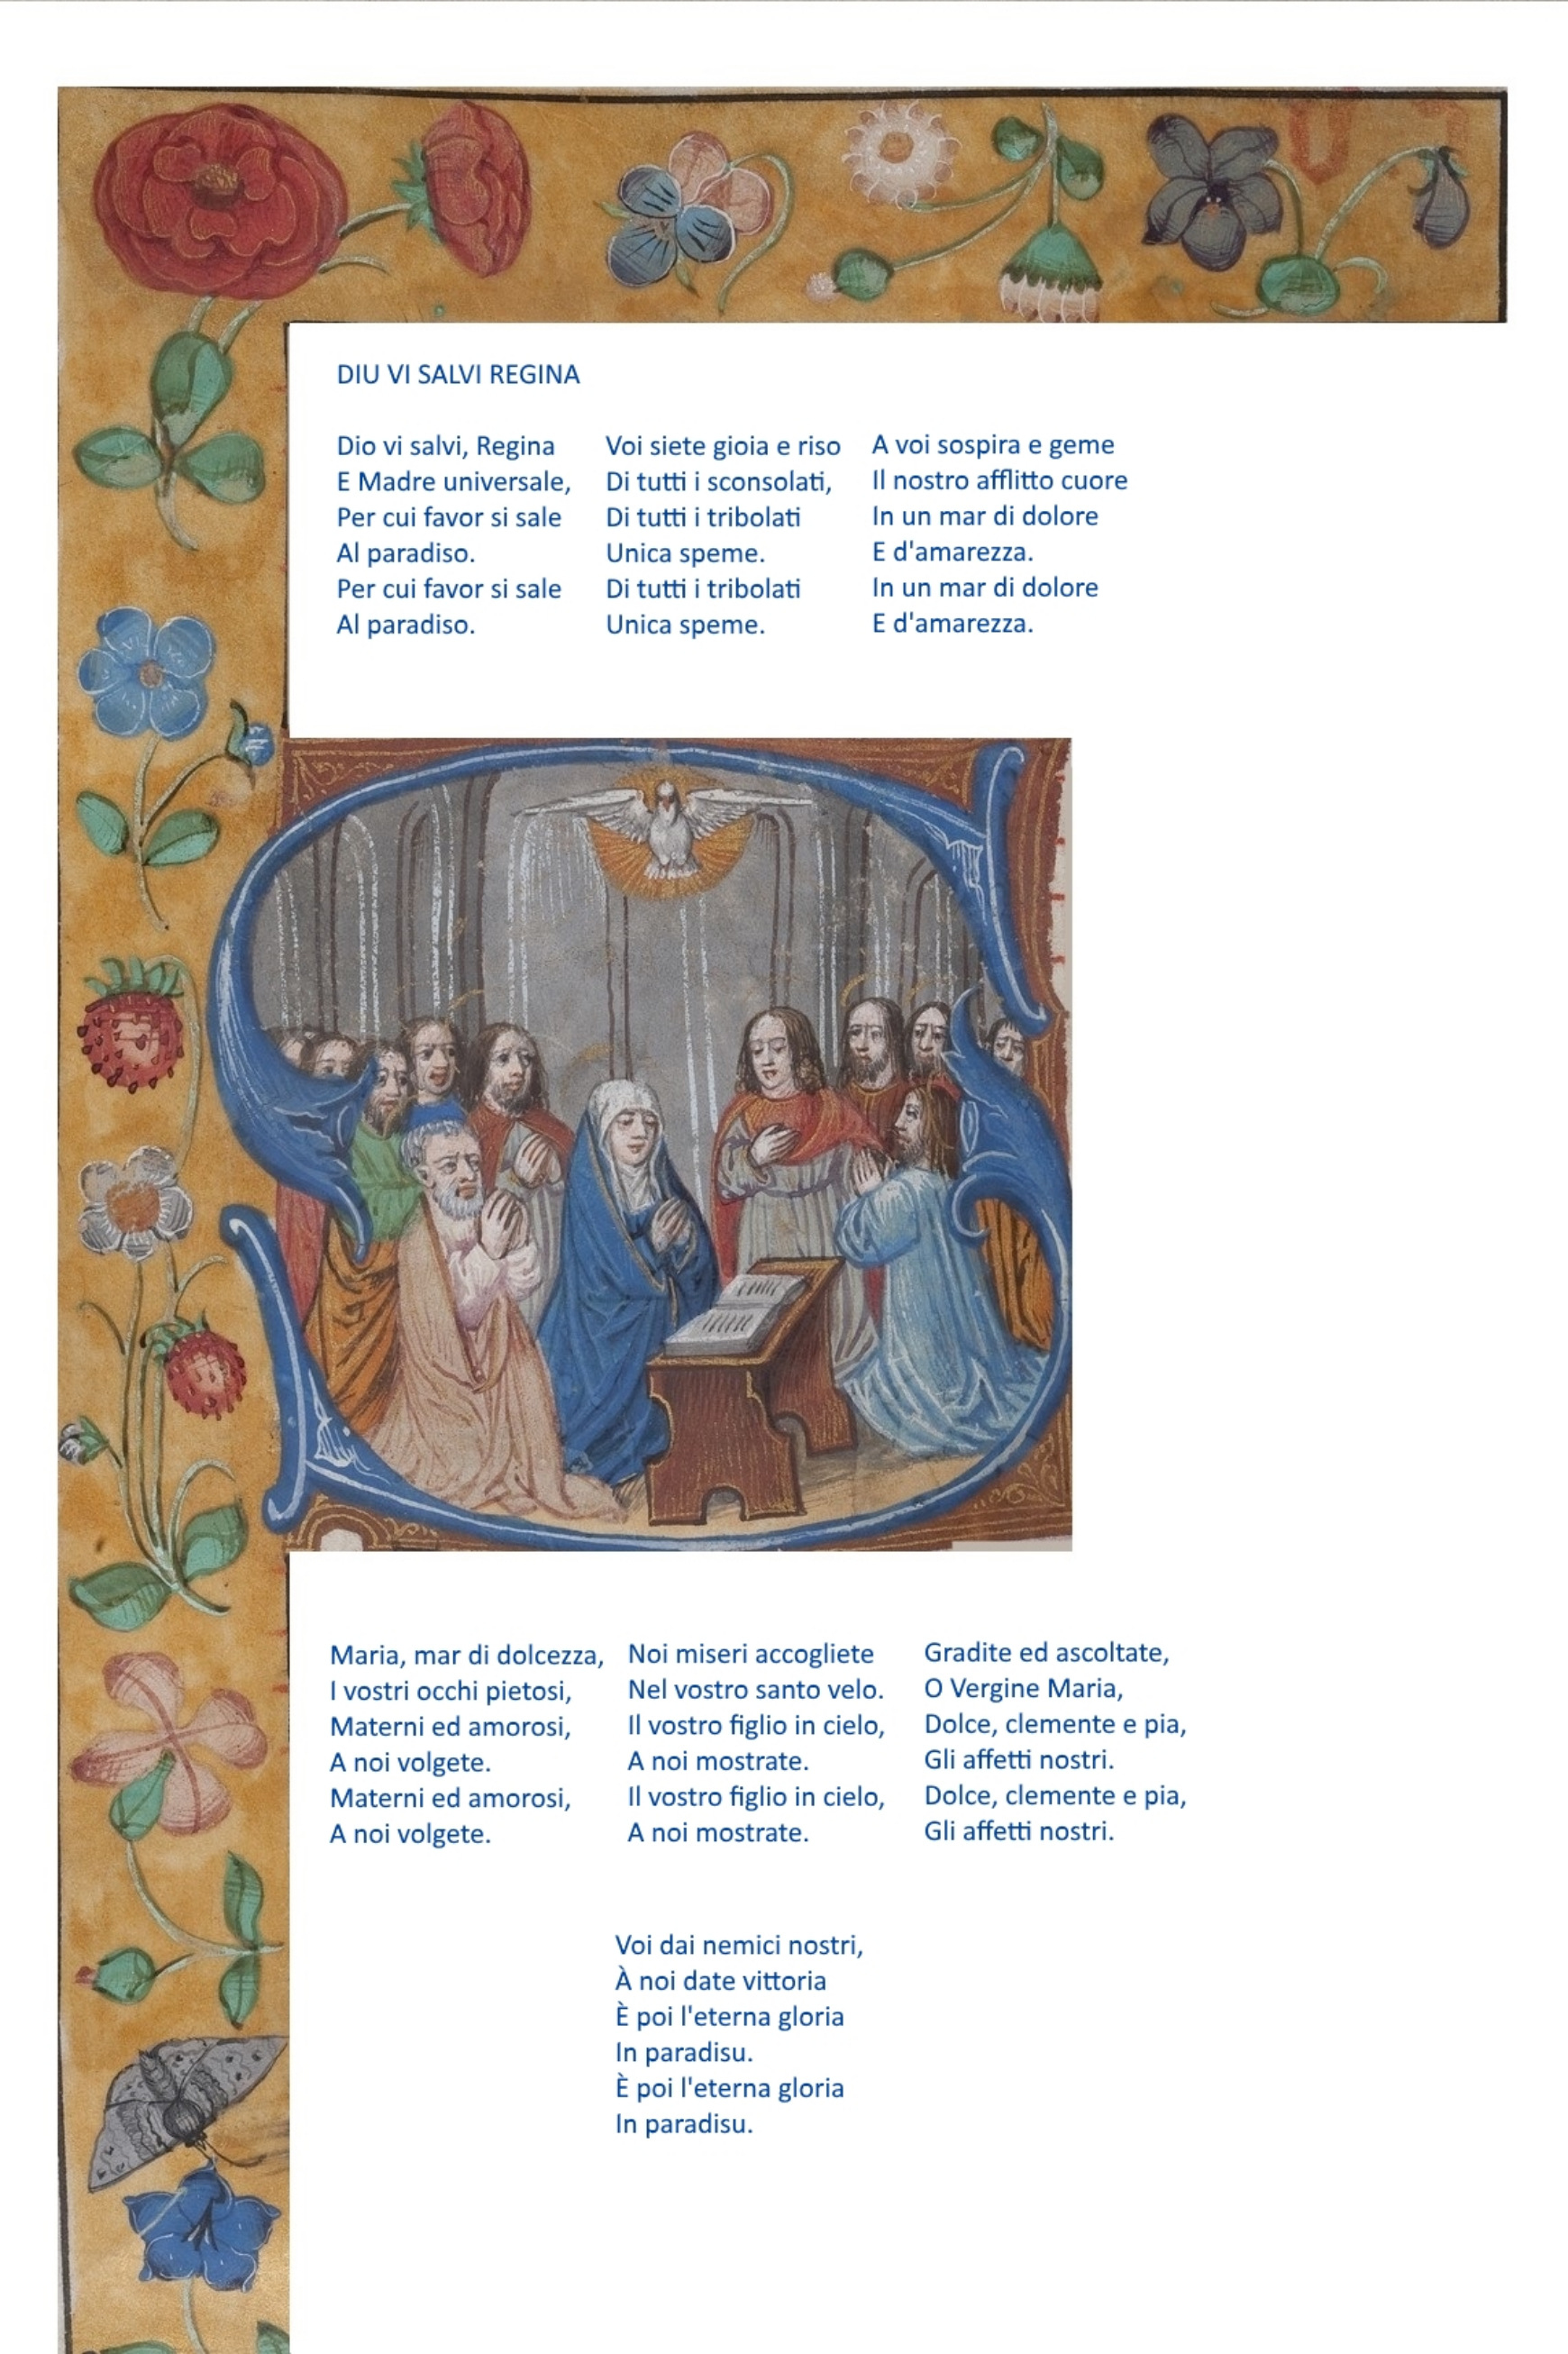 DIU VI SALVI REGINA
Dio vi salvi, Regina
E Madre universale,
Per cui favor si sale
Al paradiso.
Per cui favor si sale
Al paradiso.
Voi siete gioia e riso
Di tutti i sconsolati,
Di tutti i tribolati
Unica speme.
Di tutti i tribolati
Unica speme.
A voi sospira e geme
Il nostro afflitto cuore
In un mar di dolore
E d'amarezza.
In un mar di dolore
E d'amarezza.
Maria, mar di dolcezza,
I vostri occhi pietosi,
Materni ed amorosi,
A noi volgete.
Materni ed amorosi,
A noi volgete.
Noi miseri accogliete
Nel vostro santo velo.
Il vostro figlio in cielo,
A noi mostrate.
Il vostro figlio in cielo,
A noi mostrate.
Gradite ed ascoltate,
O Vergine Maria,
Dolce, clemente e pia,
Gli affetti nostri.
Dolce, clemente e pia,
Gli affetti nostri.
Voi dai nemici nostri,
À noi date vittoria
È poi l'eterna gloria
In paradisu.
È poi l'eterna gloria
In paradisu.